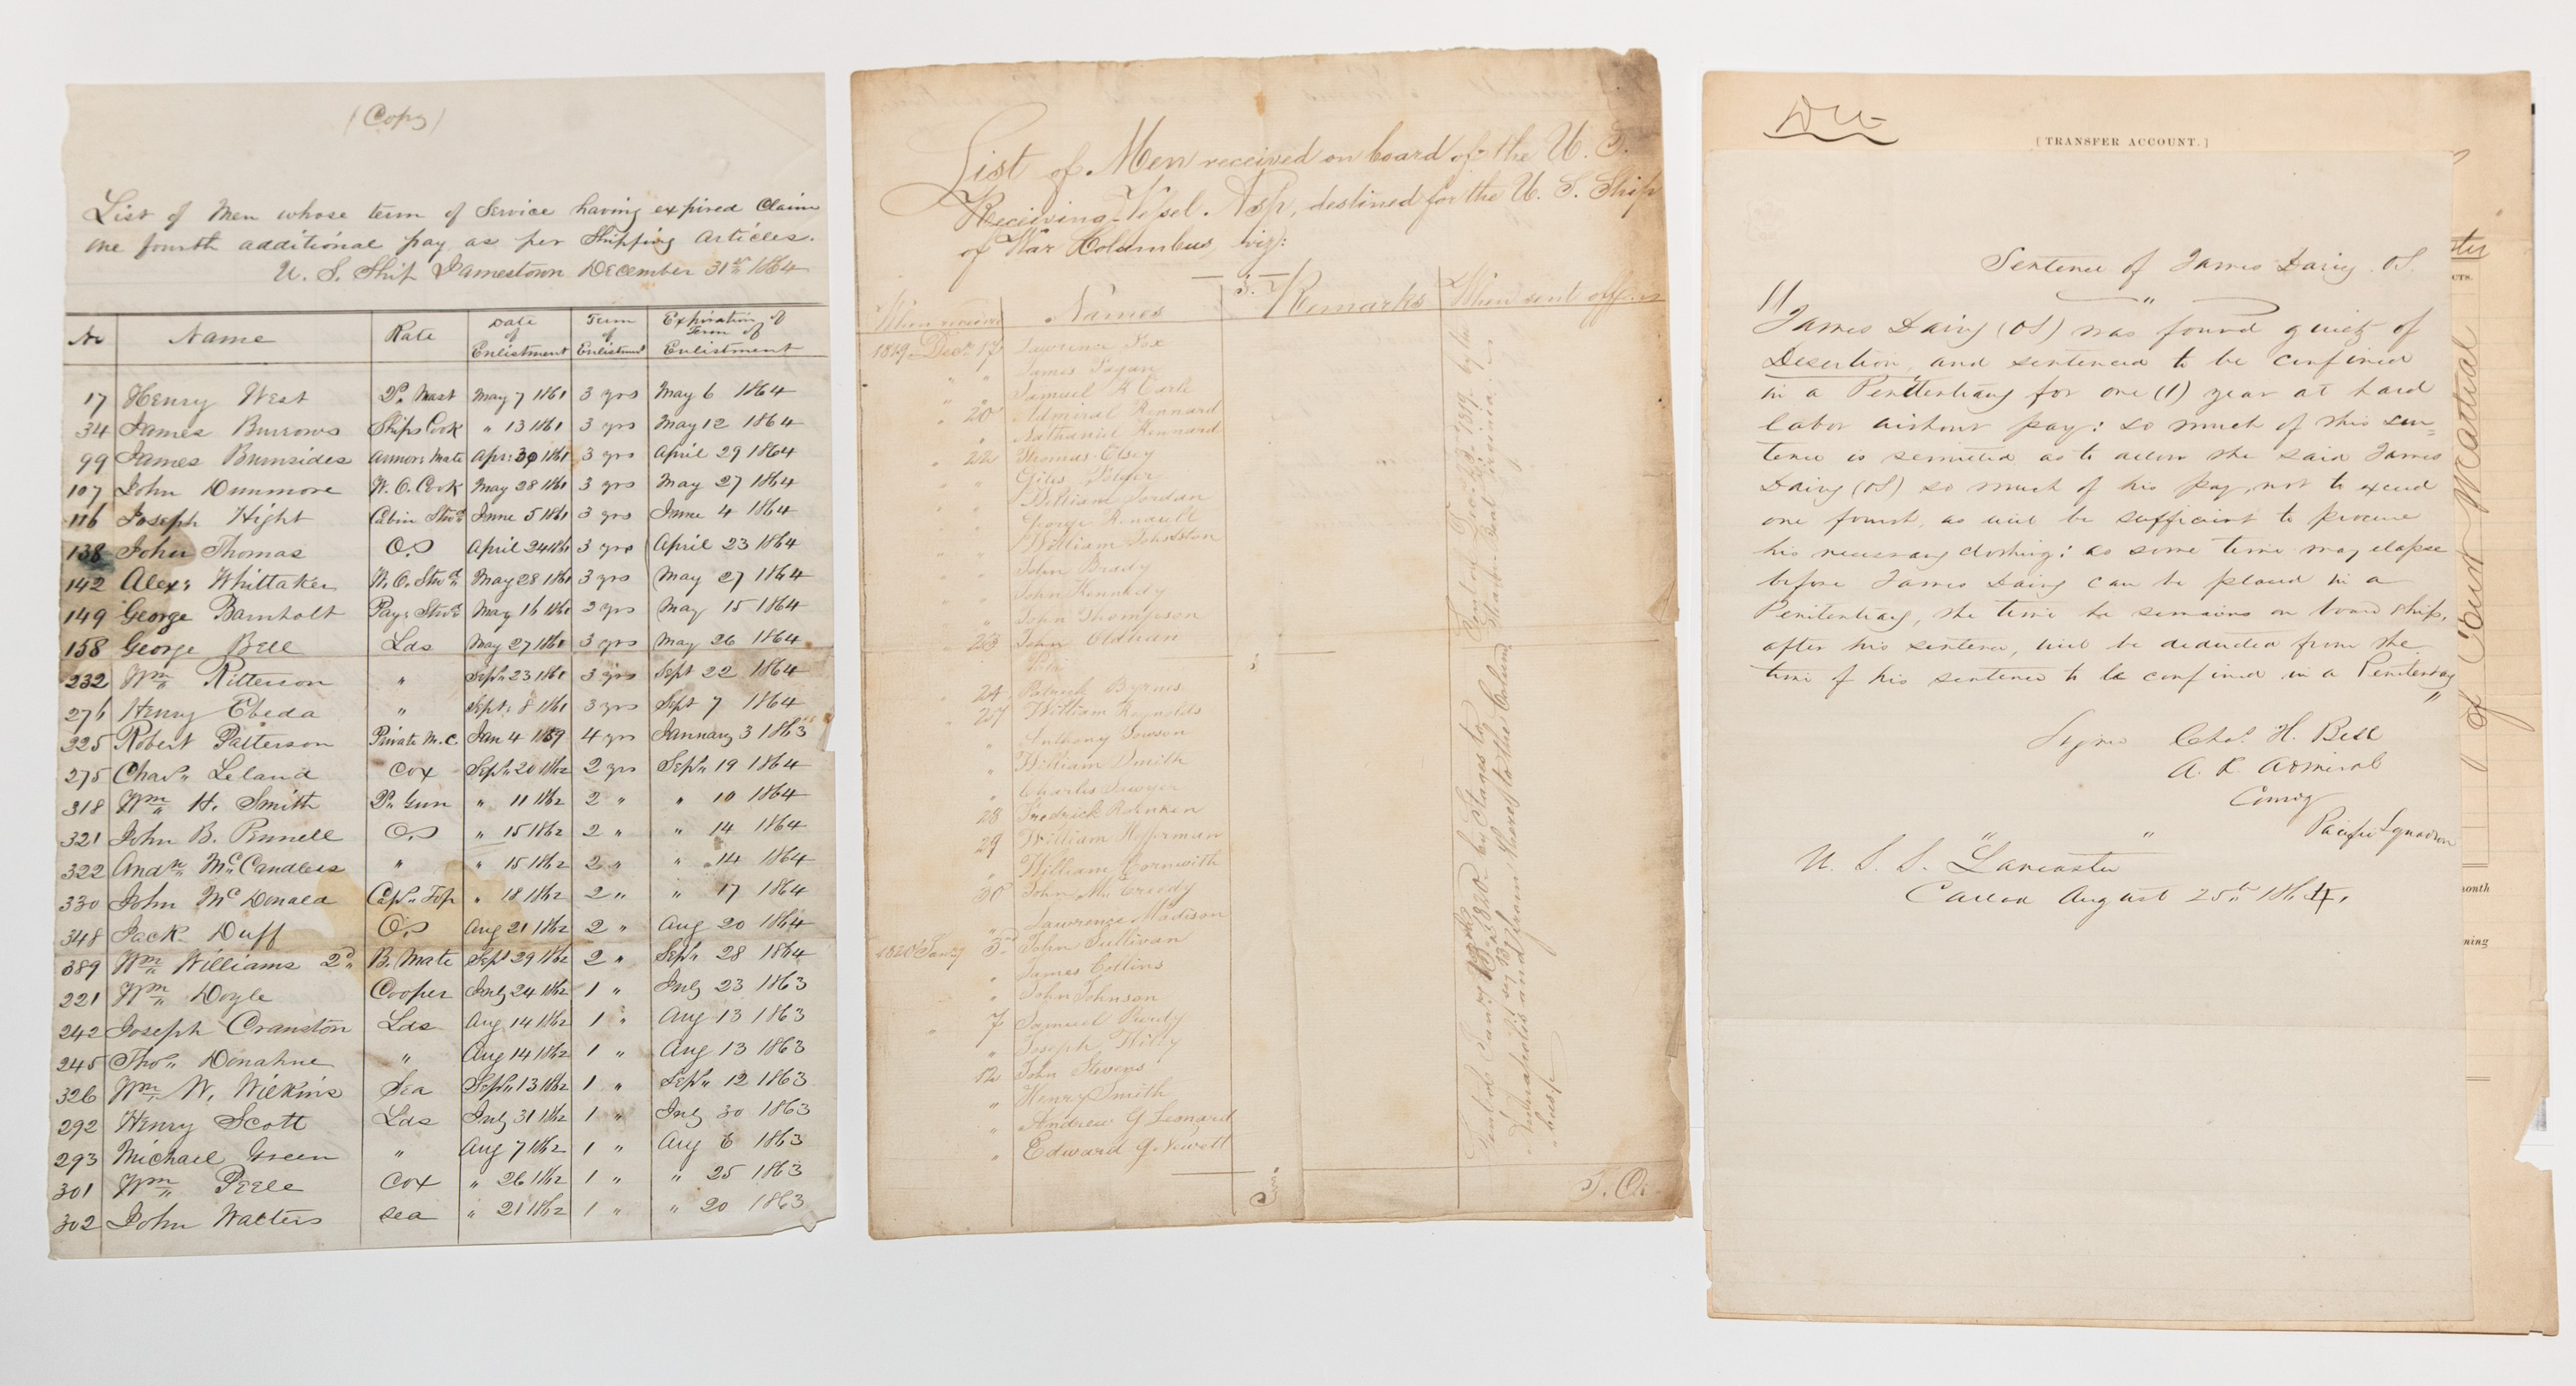 (Copy)
List of Men whose term of Service having expired Claim
one fourth additional pay as per Shipping Articles.
U. S. Ship Jamestown December 31st 1864
No Name Rate Date of Enlistment Term of Enlistment Expiration of Term of Enlistment
17 Henry West Qr. Mast May 7 1861 3 yrs May 6 1864
34 James Burrows Ships Cook " 13 1861 3 yrs May 12 1864
99 James Burnsides Armors Mate Apr: 30 1861 3 yrs April 29 1864
107 John Dunmore W. O. Cook May 28 1861 3 yrs May 27 1864
116 Joseph Hight Cabin Stwd June 5 1861 3 yrs June 4 1864
138 John Thomas O.S April 24 1861 3 yrs April 23 1864
142 Alexr Whittaker W. O. Stwd May 28 1861 3 yrs May 27 1864
149 George Barnholt Payr Stwd May 16 1861 3 yrs May 15 1864
158 George Bell Lds May 27 1861 3 yrs May 26 1864
232 Wm Ritterson " Sept 23 1861 3 yrs Sept 22 1864
276 Henry Ebeda " Sept: 8 1861 3 yrs Sept 7 1864
225 Robert Patterson Private M.C. Jan 4 1859 4 yrs January 3 1863
275 Chas Leland Cox Sept 20 1862 2 yrs Sept 19 1864
318 Wm H. Smith Qr Gun " 11 1862 2 " " 10 1864
321 John B. Pennell O.S " 15 1862 2 " " 14 1864
322 Andw McCandless " " 15 1862 2 " " 14 1864
330 John McDonald Capt Top " 18 1862 2 " " 17 1864
348 Jack Duff O.S Aug 21 1862 2 " Aug 20 1864
389 Wm Williams 2d B. Mate Sept 29 1862 2 " Sept 28 1864
221 Wm Doyle Cooper July 24 1862 1 " July 23 1863
242 Joseph Cranston Lds Aug 14 1862 1 " Aug 13 1863
245 Thos Donahue " Aug 14 1862 1 " Aug 13 1863
326 Wm W. Wilkins Sea Sept 13 1862 1 " Sept 12 1863
292 Henry Scott Lds July 31 1862 1 " July 30 1863
293 Michael Green " Aug 7 1862 1 " Aug 6 1863
301 Wm Peele Cox " 26 1862 1 " " 25 1863
302 John Walters Sea " 21 1862 1 " " 20 1863
List of Men received on board of the U. S.
Receiving Vessel Asp, destined for the U. S. Ship
of War Columbus, viz:
When received Names Remarks When sent off
1819 Decr 17 Lawrence Fox
" " James Fagan
" " Samuel
" 20 Admiral Kennard
" Nathaniel Kennard
" 22 Thomas Elsey
" " Giles
" " William Jordan
" George
" " William Johnston
" " John Brady
" " John Kennedy
" " John Thompson
" 23 John Oldham
" 24 Patrick Byrnes
" 27 William Reynolds
" Anthony Towson
" William Smith
" Charles Sawyer
28 Fredrick
29 William Hefferman
" William Cornwith
30 John McCreedy
" Lawrence Madison
1820 Jany 3rd John Sullivan
" James Collins
" John Johnson
" 7 Samuel Purdy
" Joseph Willy
12 John Stevens
" Henry Smith
" Andrew G Leonard
" Edward G Newell
1819 by the
Steam Boat Virginia
1820 by Stages to
Annapolis and from thence to the Columbus
T. O.
[TRANSFER ACCOUNT.]
Sentence of James Dairy. OS.
"
James Dairy (OS) was found guilty of
Desertion, and sentenced to be confined
in a Penitentiary for one (1) year at hard
labor without pay: so much of this sen=
tence is remitted as to allow the said James
Dairy (OS) so much of his pay, not to exceed
one fourth, as will be sufficient to procure
his necessary clothing: as some time may elapse
before James Dairy can be placed in a
Penitentiary, the time he remains on board ship,
after his sentence, will be deducted from the
time of his sentence to be confined in a Penitentiary
"
Signed Chas. H. Bell
A. R. Admiral
Comdg
Pacific Squadron
U. S. S. "Lancaster"
Callao August 25th 1864.
of Court Martial
CTS.
month
ning